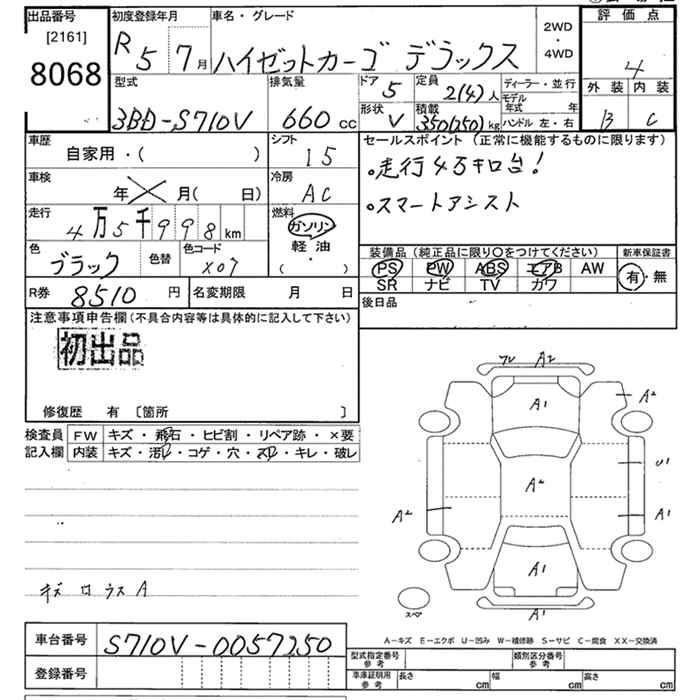 出品番号
[2161]
8068
初度登録年月
R5 7月
車名・グレード
ハイゼットカーゴ デラックス
2WD
・
4WD
評価点
4
外装 内装
B C
型式
3BD-S710V
排気量
660 cc
ドア 5
形状 V
定員 2(4)人
積載 350(250)kg
ディーラー・並行
モデル年式 年
ハンドル 左・右
車歴
自家用・( )
シフト
I5
車検
年 月( 日)
冷房
AC
走行
4万5千998km
燃料
ガソリン
軽油
( )
色
ブラック
色替
色コード
X07
R券 8510円
名変期限 月 日
セールスポイント(正常に機能するものに限ります)
。走行4万キロ台!
。スマートアシスト
装備品(純正品に限り〇をつけてください)
PS PW ABS エアB AW
SR ナビ TV カワ
新車保証書
有・無
後日品
注意事項申告欄(不具合内容等は具体的に記入して下さい)
初出品
修復歴 有 〔箇所 〕
検査員
記入欄
FW キズ・飛石・ヒビ割・リペア跡・×要
内装 キズ・汚レ・コゲ・穴・スレ・キレ・破レ
A2
A1
A2
A2
U1
A2
A1
A1
A1
スペア
車台番号 S710V-0057250
登録番号
A-キズ E-エクボ U-凹み W-補修跡 S-サビ C-腐食 XX-交換済
型式指定番号 参考
類別区分番号 参考
車庫証明用 参考
長さ cm 幅 cm 高さ cm